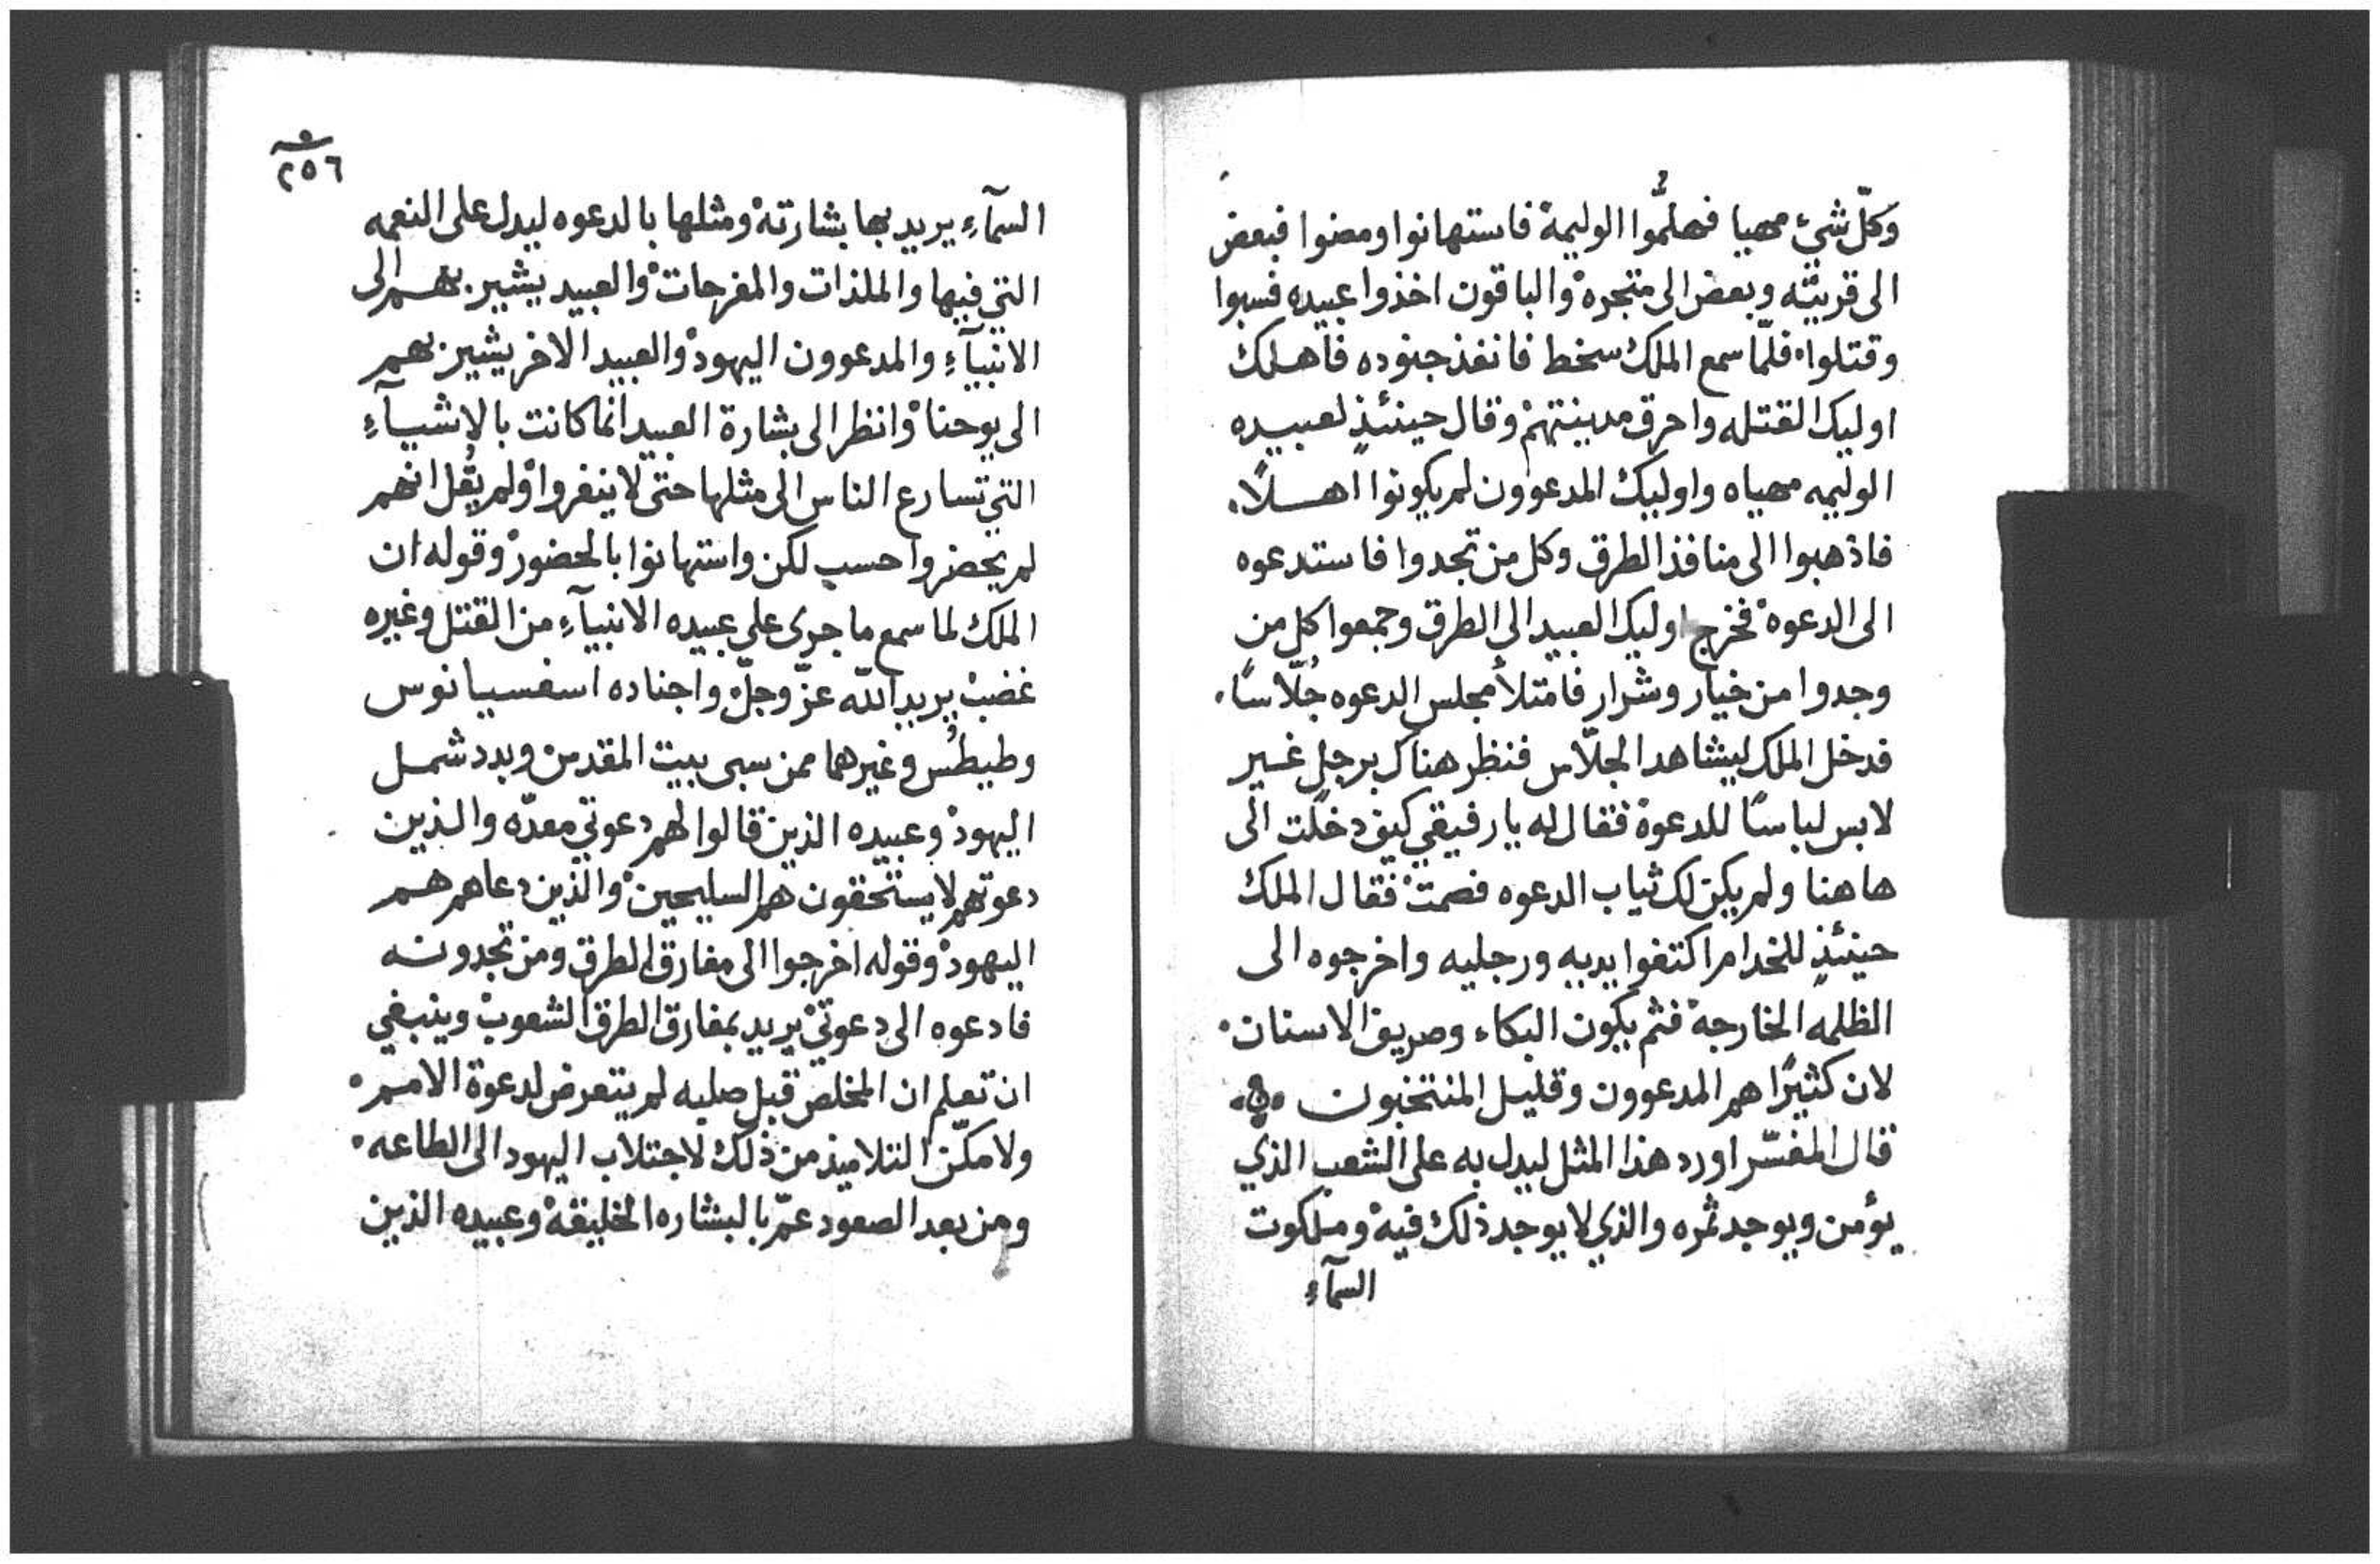 وكلّ شيء مهيا فهلمُّوا الوليمة فاستهانوا ومضوا فبعض
الى قريته وبعض الى متجره والباقون اخذوا عبيده فسبوا
وقتلوا فلمّا سمع الملك سخط فانفذ جنوده فاهلك
اوليك القتله واحرق مدينتهم وقال حينئذٍ لعبيده
الوليمه مهياه واوليك المدعوون لم يكونوا اهلاً
فاذهبوا الى منافذ الطرق وكل من تجدوا فاستدعوه
الى الدعوه فخرج اوليك العبيد الى الطرق وجمعوا كل من
وجدوا من خيار وشرار فامتلأ مجلس الدعوه جُلّاسًا
فدخل الملك ليشاهد الجلّاس فنظر هناك برجلٍ غير
لابس لباسًا للدعوة فقال له يا رفيقي كيف دخلت الى
هاهنا ولم يكن لك ثياب الدعوه فصمت فقال الملك
حينئذٍ للخدام اكتفوا يديه ورجليه واخرجوه الى
الظلمه الخارجه فثم يكون البكاء وصريف الاسنان
لان كثيرًا هم المدعوون وقليل المنتخبون
قال المفسّر اورد هذا المثل ليدل به على الشعب الذي
يؤمن ويوجد ثمره والذي لا يوجد ذلك فيه وملكوت
السمآءِ
٢٥٦
السمآءِ يريد بها بشارته ومثلها بالدعوه ليدل على النعمه
التي فيها والملذات والمفرحات والعبيد يشير بهم الى
الانبيآءِ والمدعوون اليهود والعبيد الاخر يشير بهم
الى يوحنا وانظر الى بشارة العبيد انما كانت بالاشيآءِ
التي تسارع الناس الى مثلها حتى لا ينفروا ولم يقُل انهم
لم يحضروا حسب لكن واستهانوا بالحضور وقوله ان
الملك لما سمع ما جرى على عبيده الانبيآءِ من القتل وغيره
غضب يريد الله عزّ وجلّ واجناده اسفسيانوس
وطيطُس وغيرهما ممن سبى بيت المقدس وبدد شمل
اليهود وعبيده الذين قالوا لهم دعوتي معدّه والذين
دعوتهم لا يستحقون هم السليحين والذين دعاهم هم
اليهود وقوله اخرجوا الى مفارق الطرق ومن تجدونه
فادعوه الى دعوتي يريد بمفارق الطرق الشعوب وينبغي
ان تعلم ان المخلص قبل صلبه لم يتعرض لدعوة الامم
ولا مكّن التلاميذ من ذلك لاجتلاب اليهود الى الطاعه
ومن بعد الصعود عمّ بالبشاره الخليقه وعبيده الذين